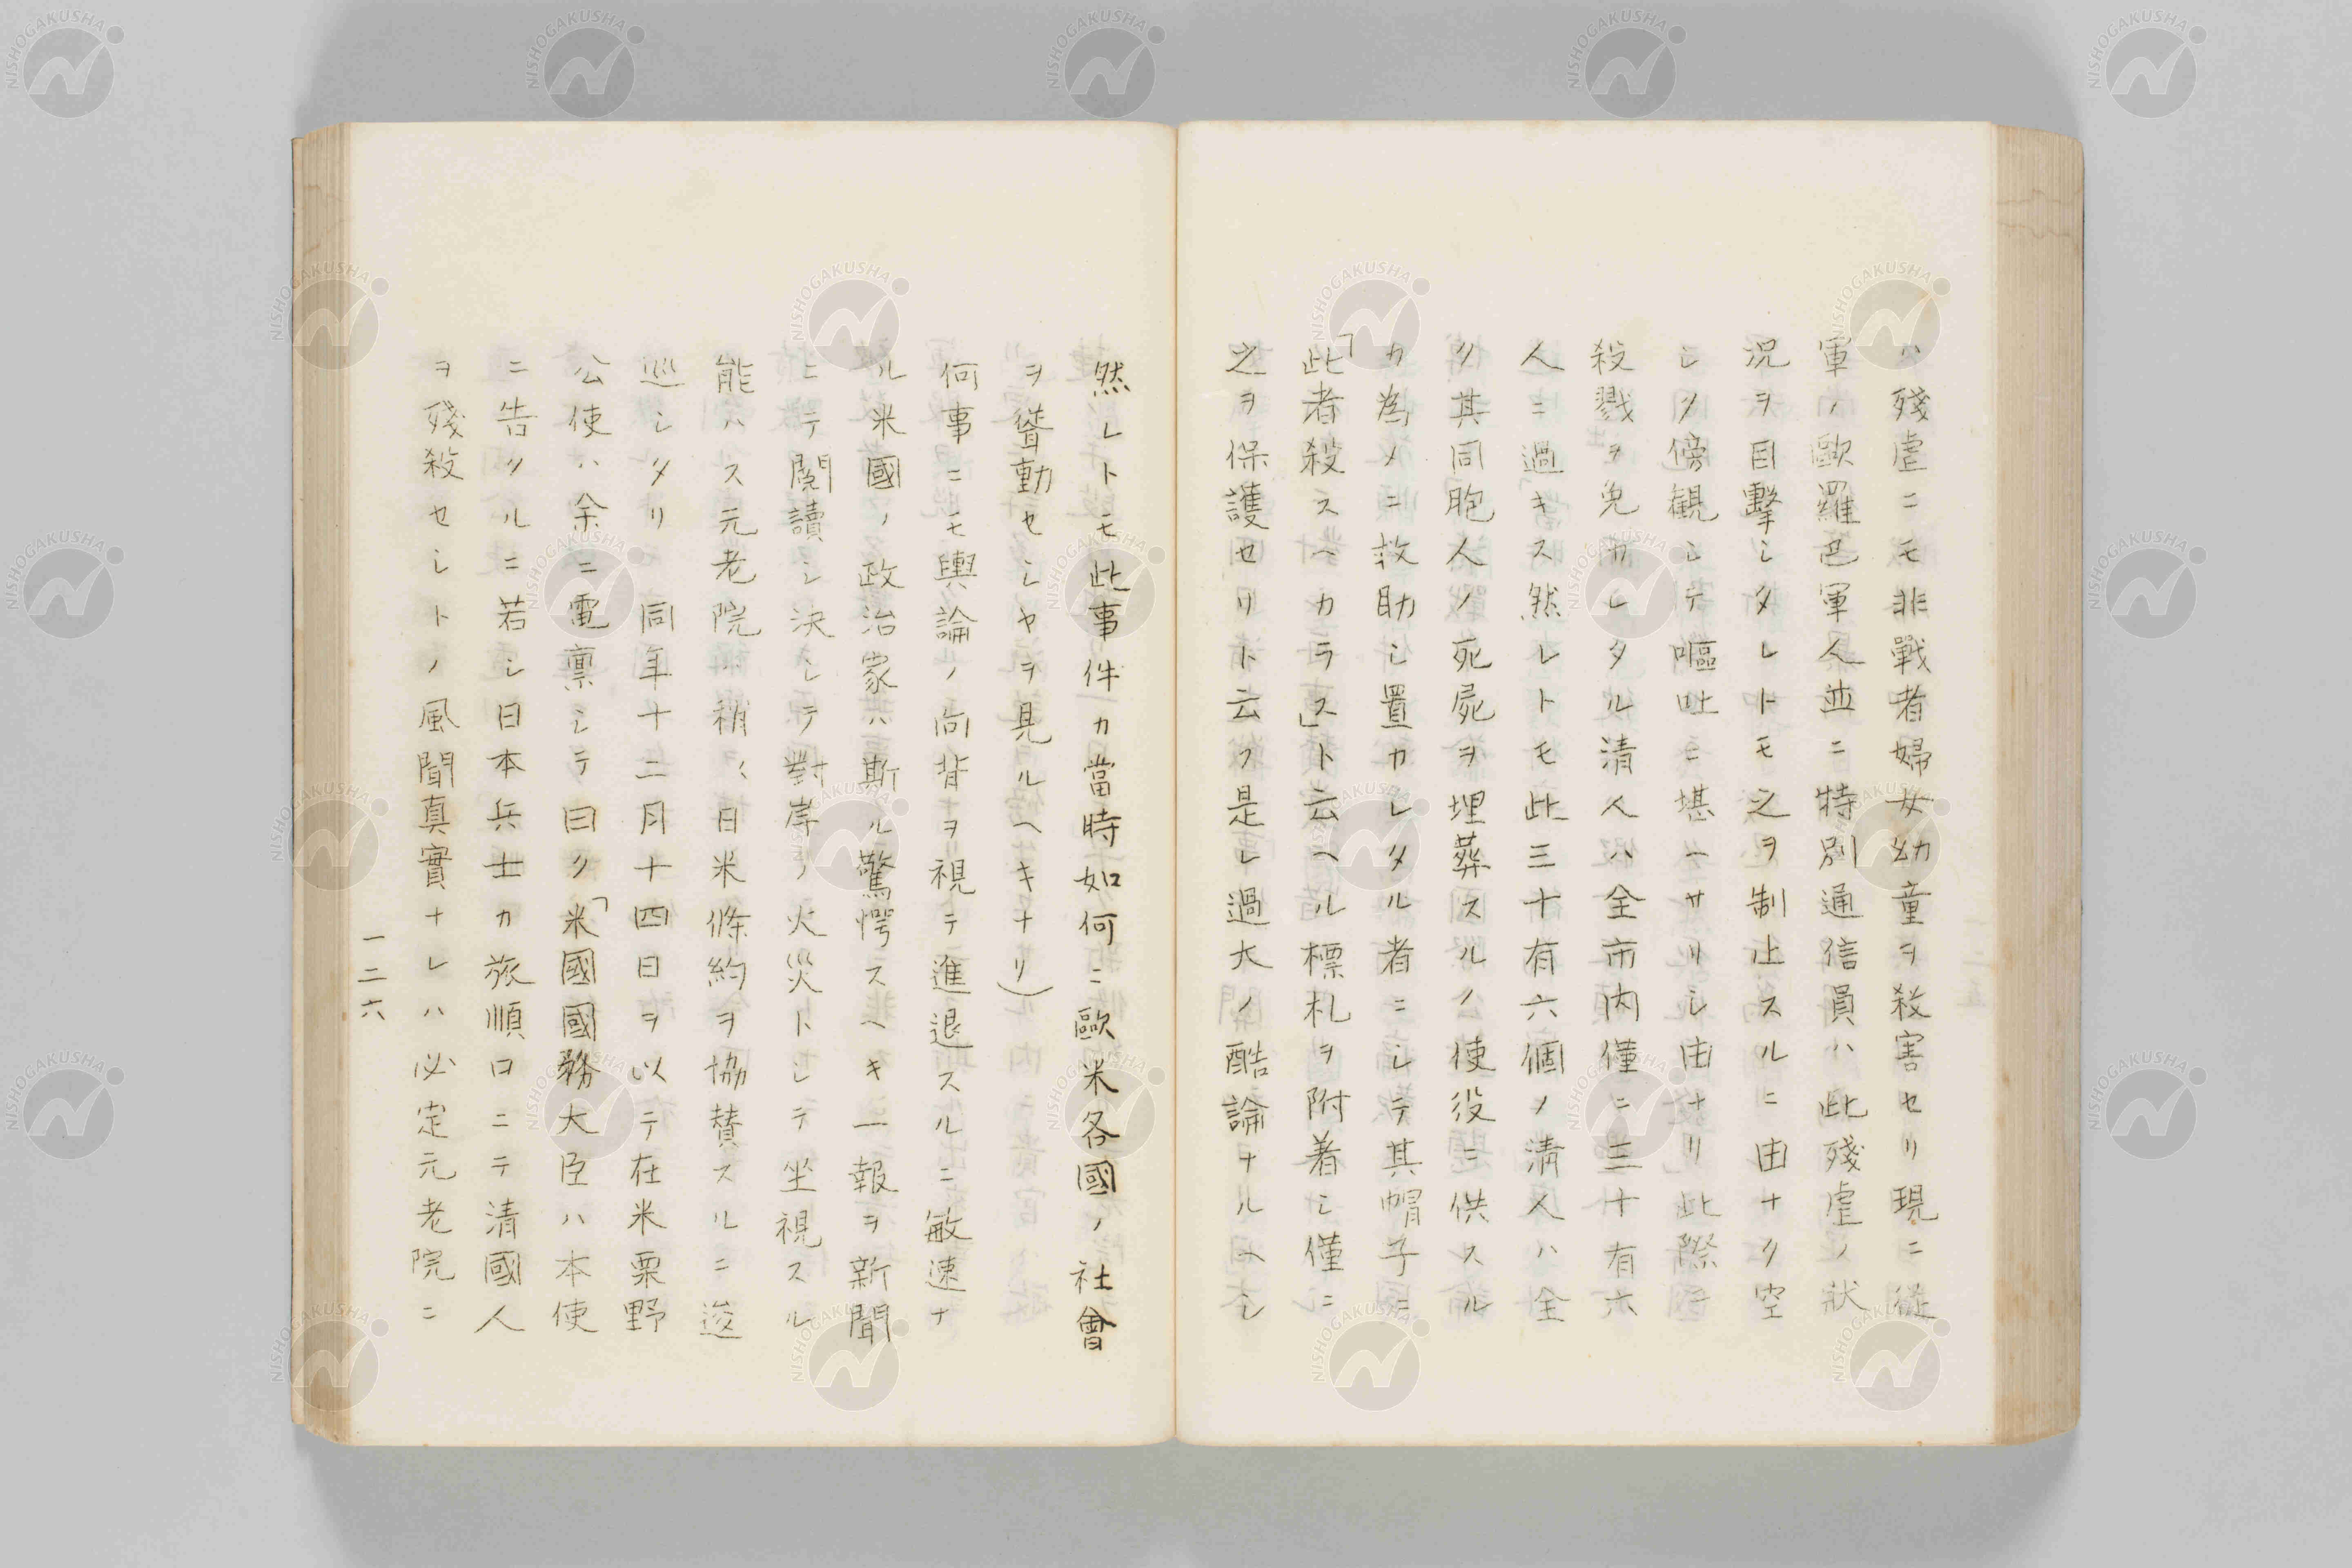 ハ殘虐ニモ非戰者婦女幼童ヲ殺害セリ現ニ従
軍ノ歐羅巴軍人並ニ特別通信員ハ此殘虐ノ狀
況ヲ目擊シタレトモ之ヲ制止スルニ由ナク空
シク傍観シテ嘔吐ニ堪ヘサリシ由ナリ此際ニ
殺戮ヲ免カレタル清人ハ全市内僅ニ三十有六
人ニ過キス然レトモ此三十有六個ノ清人ハ全
ク其同胞人ノ死屍ヲ埋葬スルノ使役ニ供スル
カ為メニ救助シ置カレタル者ニシテ其帽子ニ
「此者殺スヘカラス」ト云ヘル標札ヲ附着シ僅ニ
之ヲ保護セリト云ク是レ過大ノ酷論ナルヘシ
然レトモ此事件カ當時如何ニ歐米各國ノ社會
ヲ聳動セシヤヲ見ルヘキナリ)
何事ニモ輿論ノ向背ヲ視テ進退スルニ敏速ナ
ル米國ノ政治家ハ斯ル驚愕スヘキ一報ヲ新聞
ニテ閱讀シ決シテ對岸ノ火災トシテ坐視スル
能ハス元老院ハ稍〱日米條約ヲ協賛スルニ逡
巡シタリ同年十二月十四日ヲ以テ在米栗野
公使ハ余ニ電禀シテ曰ク「米國國務大臣ハ本使
ニ告クルニ若シ日本兵士カ旅順口ニテ清國人
ヲ殘殺セシトノ風聞真實ナレハ必定元老院ニ
一二六
NISHOGAKUSHA